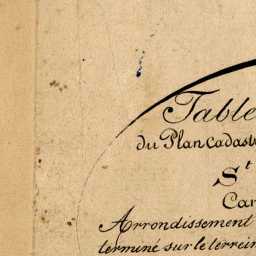 Table
du Plan Cadast
St
Ca
Arrondissement
terminé sur le terrein